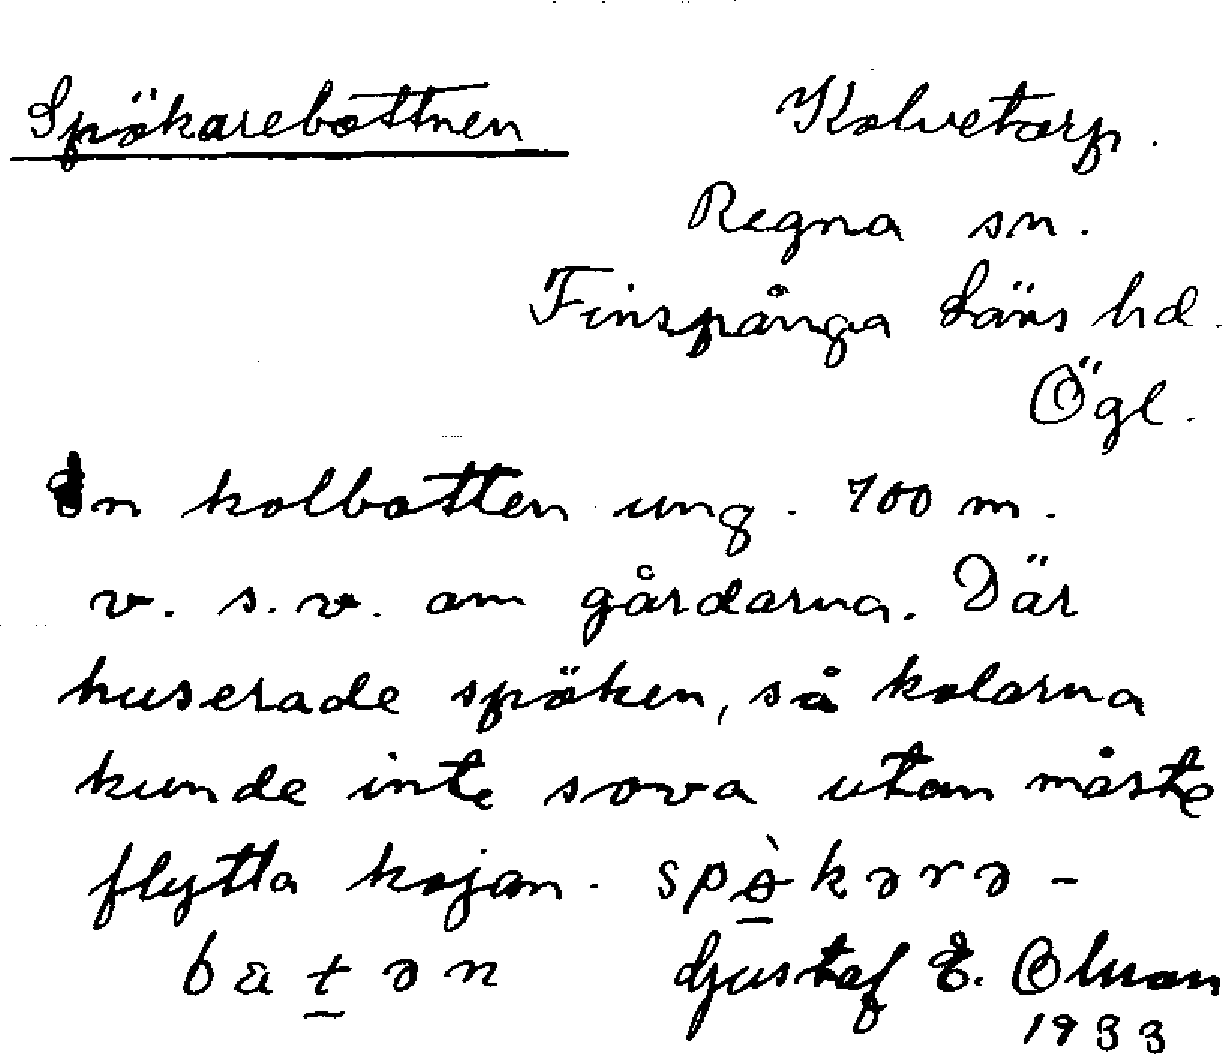 Spökarebottnen
Kolvetorp.
Regna sn.
Finspånga Läns hd.
Ögl.
En kolbotten ung. 700 m.
v. s. v. om gårdarna. Där
huserade spöken, så kolarna
kunde inte sova utan måste
flytta kojan. spө̀kərə-
batən Gustaf E. Olsson
1933